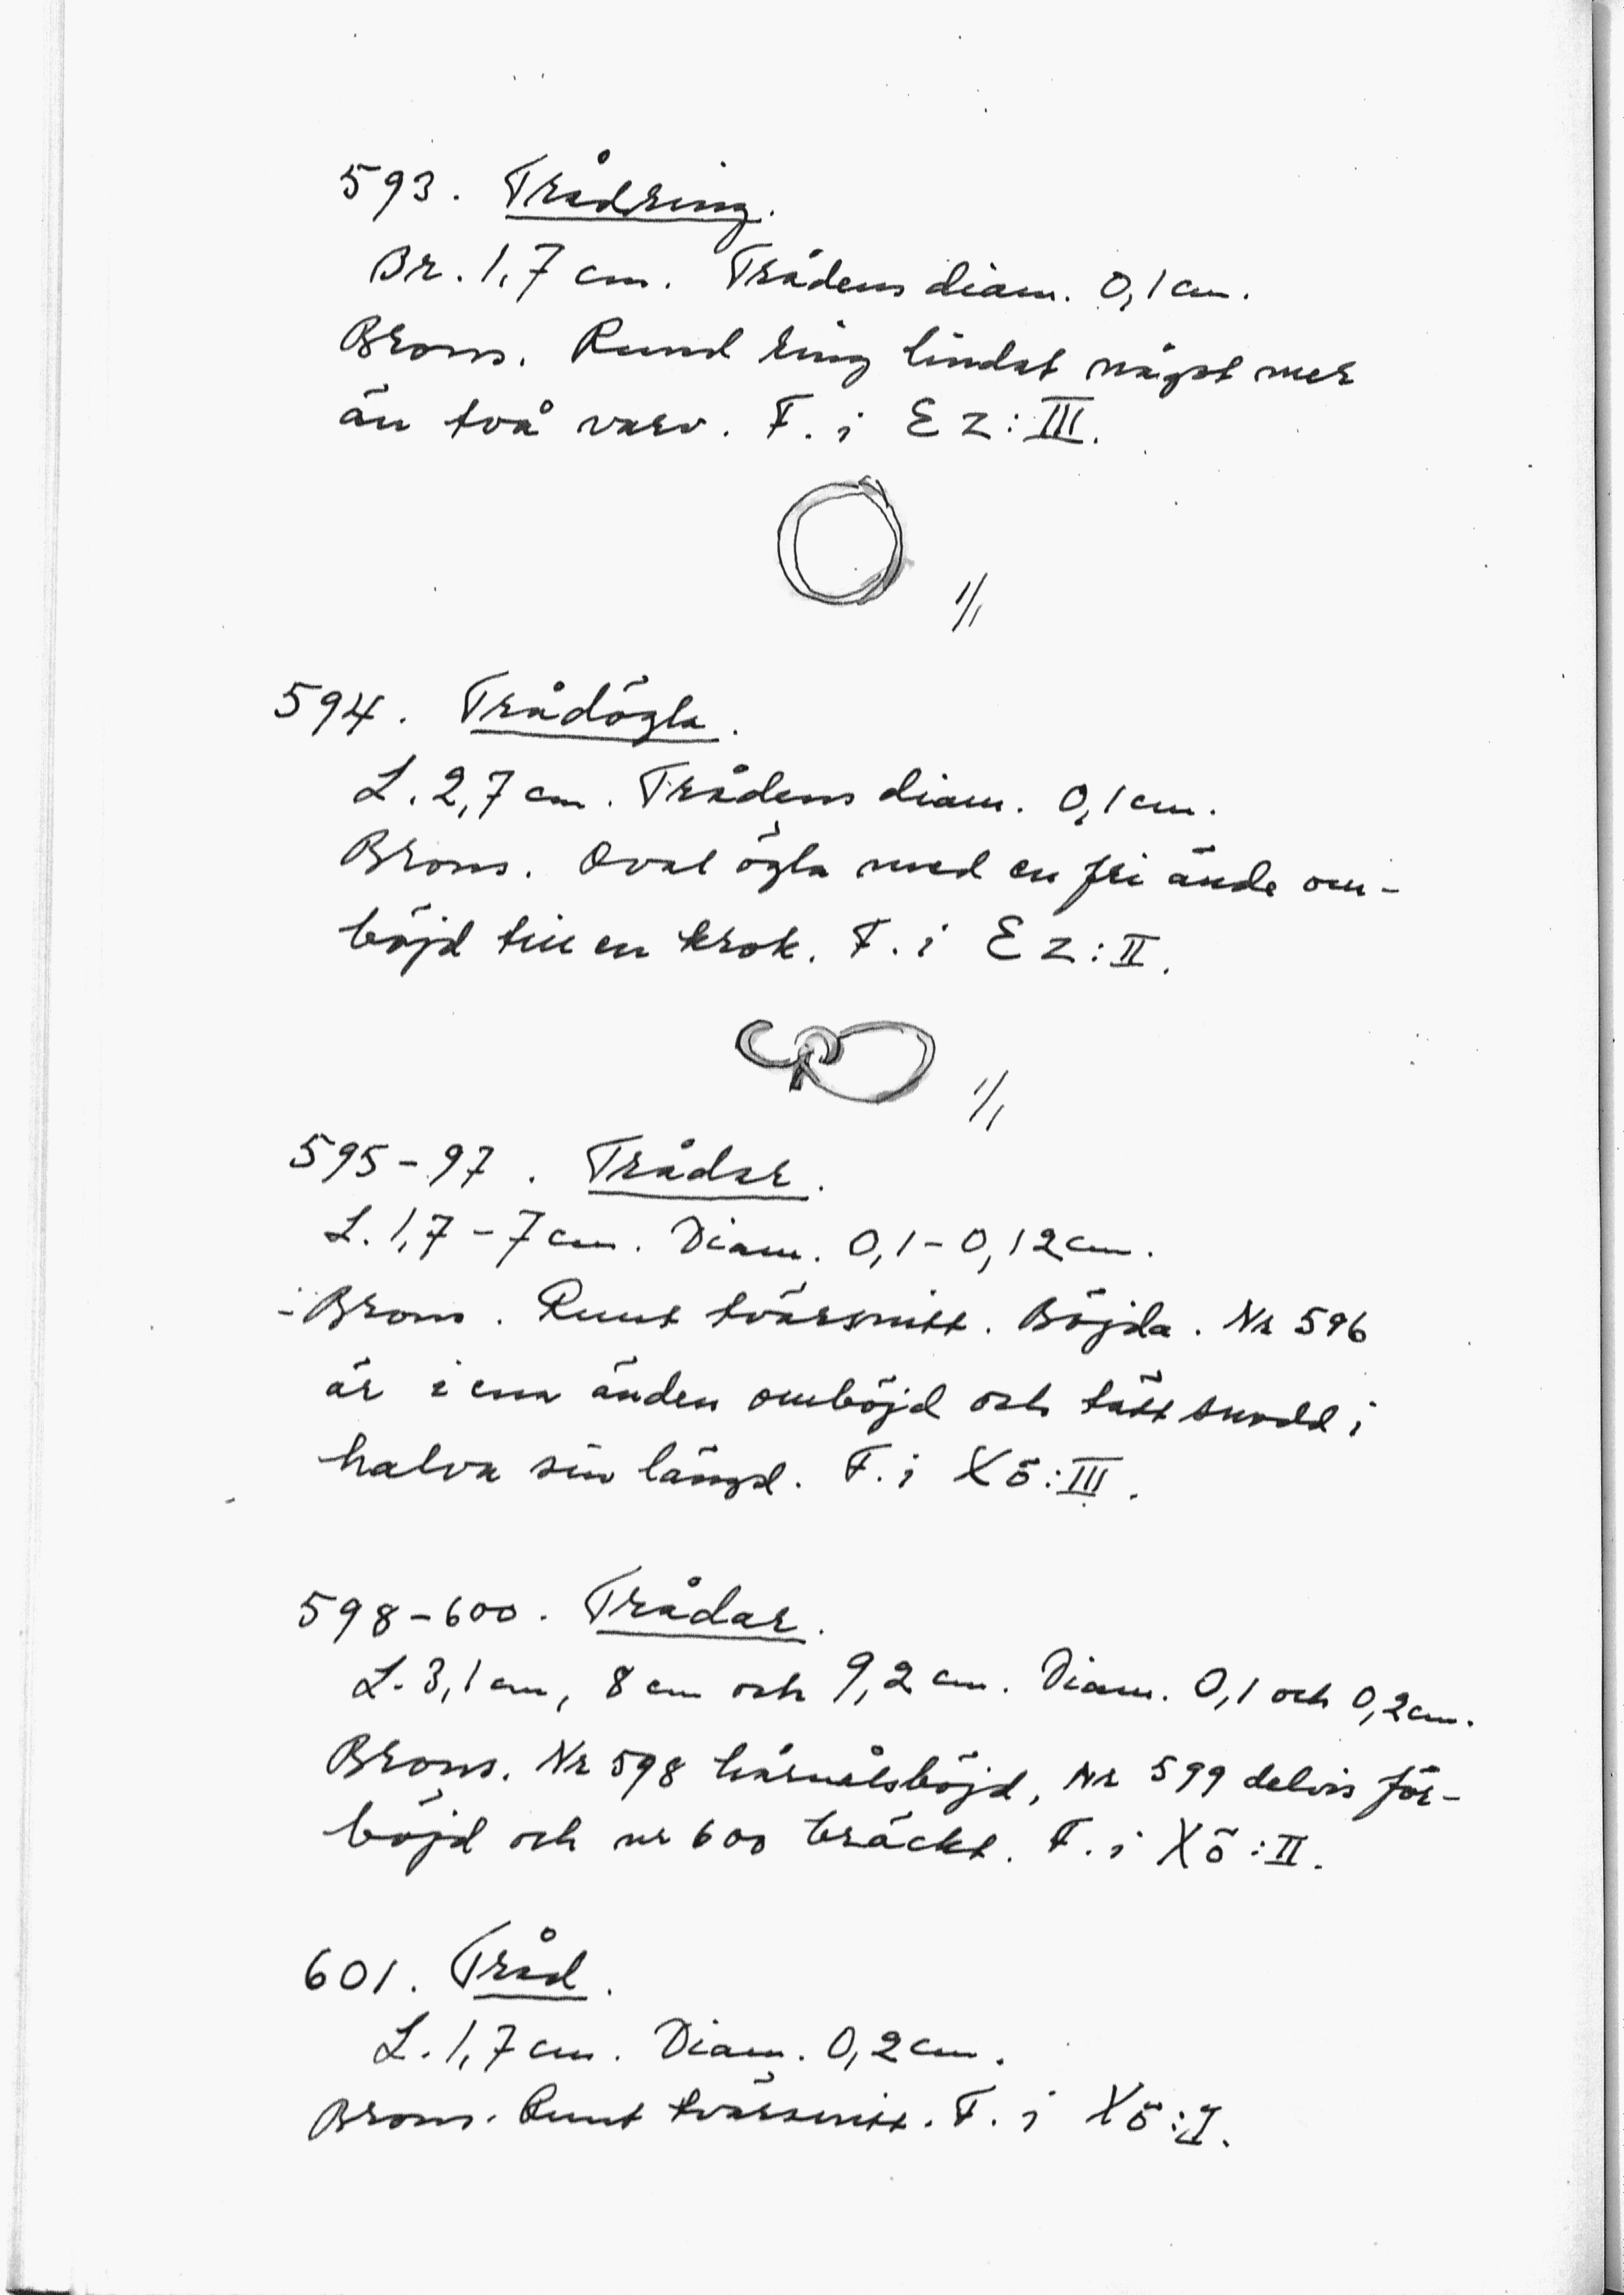 593. Trådring.
Br. 1,7 cm. Trådens diam. 0,1 cm.
Brons. Rund ring lindat något mer
än två varv. F. i Ez: III.
1/1
594. Trådögla.
L. 2,7 cm. Trådens diam. 0,1 cm.
Brons. Oval ögla med en fri ände om-
böjd till en krok. F. i Ez: II.
1/1
595-97. Trådar.
L. 1,7 - 7 cm. Diam. 0,1 - 0,12 cm.
Brons. Runt tvärsnitt. Böjda. Nr 596
är i ena änden omböjd och tätt snodd i
halva sin längd. F. i Xö: III.
598-600. Trådar.
L. 3,1 cm, 8 cm och 9,2 cm. Diam. 0,1 och 0,2 cm.
Brons. Nr 598 hårnålsböjd, nr 599 delvis för-
böjd och nr 600 bräckt. F. i Xö: II.
601. Tråd.
L. 1,7 cm. Diam. 0,2 cm.
Brons. Runt tvärsnitt. F. i Xö: I.